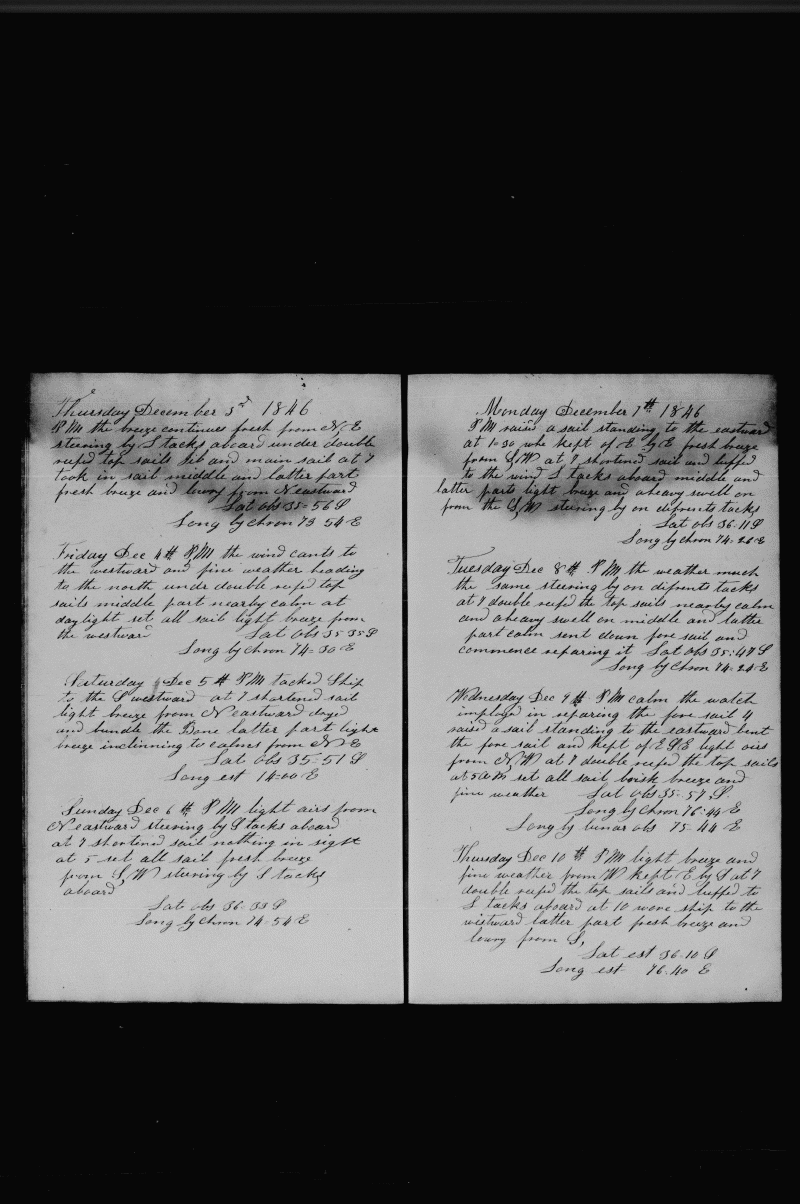 Thursday December 3rd 1846
P M the breeze continues fresh from N E
steering by S tacks aboard under double
reefd top sails jib and main sail at 7
took in sail middle and latter part
fresh breeze and lowry from N eastward
Lat obs 35=56 S
Long by chron 73 54 E
Friday Dec 4th P M the wind cants to
the westward and fine weather heading
to the north undr double reefd top
sails middle part nearly calm at
daylight set all sail light breeze from
the westward Lat obs 35 35 S
Long by chron 74=30 E
Saturday Dec 5th P M tacked Ship
to the S westward at 7 shortened sail
light breeze from N eastward
and bundle the Bone latter part light
breeze inclinning to calms from N E
Lat obs 35=51 S
Long est 74=00 E
Sunday Dec 6th P M light airs from
N eastward steering by S tacks aboard
at 7 shortened sail nothing in sight
at 5 set all sail fresh breeze
from S, W steering by S tacks
aboard
Lat obs 36.33 S
Long by chron 74=54 E
Monday December 7th 1846
P M raised a sail standing to the eastward
at 10 30 kept of E by E fresh breeze
from S, W at 7 shortened sail and luffed
to the wind S tacks aboard middle and
latter parts light breeze and a heavy swell on
from the S, W steering by on difrents tacks
Lat obs 36.11 S
Long by chron 74.26 E
Tuesday Dec 8th P M the weather much
the same steering by on difrents tacks
at 7 double reefd the top sails nearly calm
and a heavy swell on middle and latter
part calm sent down fore sail and
commence reparing it Lat obs 35:47 S
Long by chron 74.24 E
Wednesday Dec 9th P M calm the watch
imployd in reparing the fore sail 4
raised a sail standing to the eastward bent
the fore sail and kept of E S E light airs
from N, W at 7 double reefd the top sails
at 5 AM set all sail brisk breeze and
fine weather Lat obs 35=57 S.
Long by chron 76:44 E
Long by lunar obs 75 44 E
Thursday Dec 10th P M light breeze and
fine weather from W kept E by S at 7
double reefd the top sails and luffed to
S tacks aboard at 10 wore ship to the
westward latter part fresh breeze and
lowry from S,
Lat est 36.10 S
Long est 76.40 E